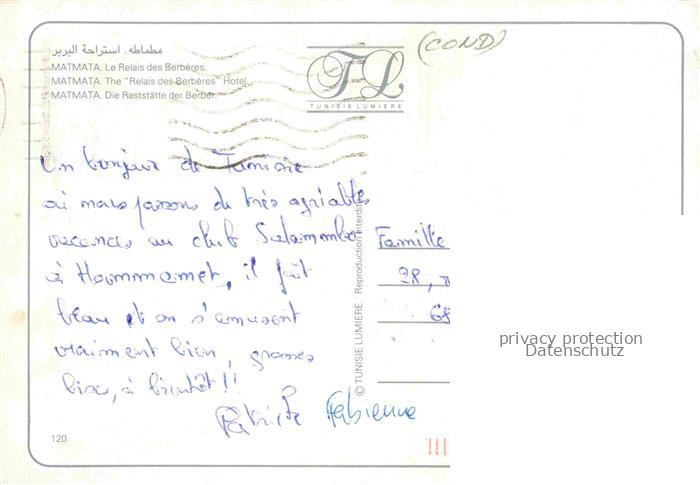 مطماطه. استراحة البربر
MATMATA. Le Relais des Berbères.
MATMATA. The "Relais des Berbères" Hotel.
MATMATA. Die Raststätte der Berber.
TL
TUNISIE LUMIERE
(COND)
Un bonjour de Tunisie
où nous passons de très agréables
vacances au club Salammbo
à Hammamet, il fait
beau et on s'amusent
vraiment bien, grosses
bises, à bientôt!!
Patrick Fabienne
© TUNISIE LUMIERE Reproduction interdite
Famille
28,
68
privacy protection
Datenschutz
120